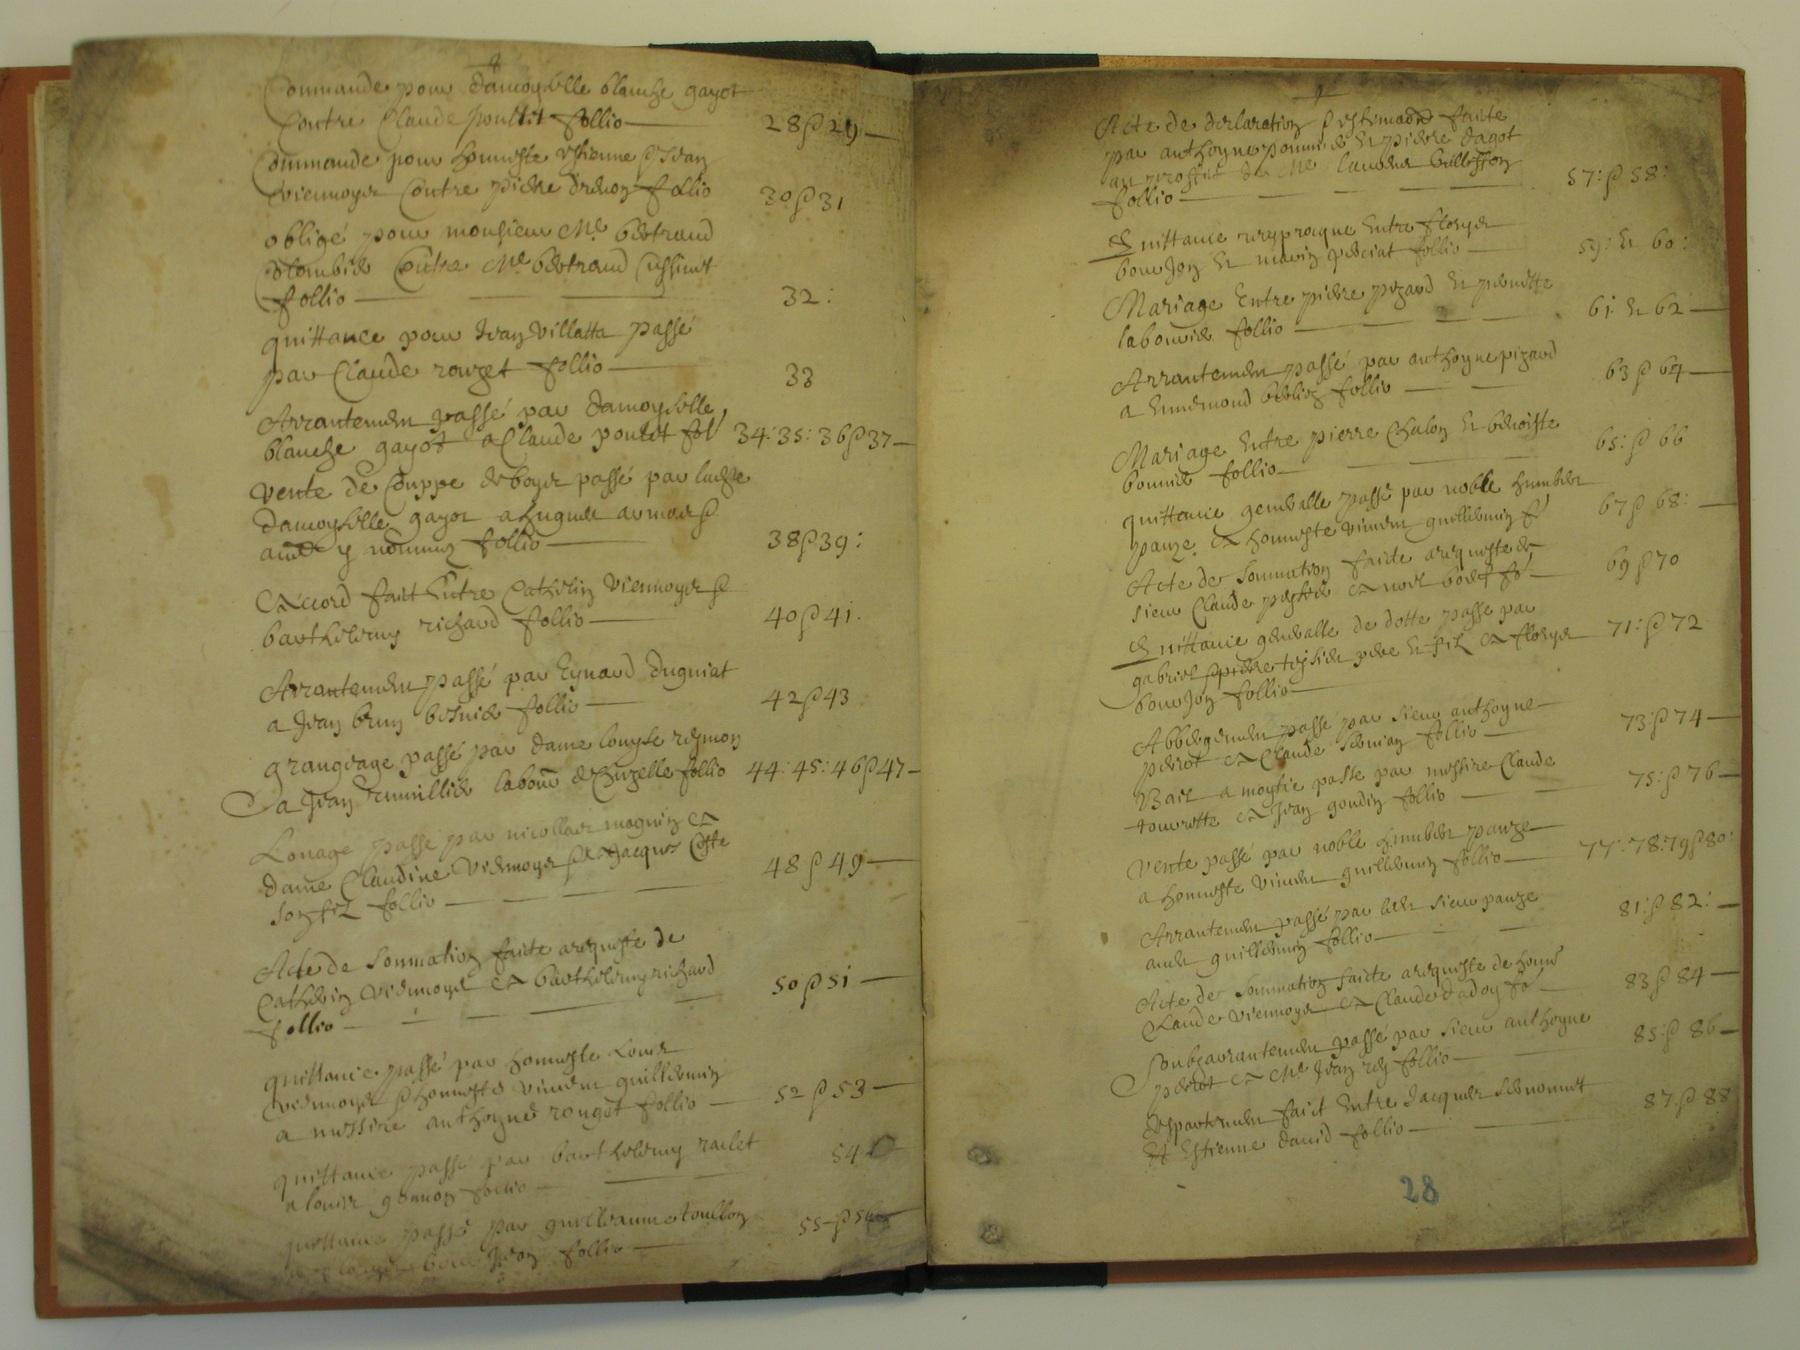 Commande pour damoyselle blanche gayot
Contre Claude poullet follio 28 & 29
Commande pour honneste Estienne & Jean
Viennoys Contre pierre follio 30 & 31
obligé pour monsieur Me bertrand
Colombier Contre Me bertrand
follio 32:
quittance pour Jean Villatta passé
par Claude rouget follio 33
Arrantement passé par damoyselle
blanche gayot a Claude poulet fol 34: 35: 36 & 37
Vente de Couppe de boys passé par ladite
damoyselle gayot a hugues &
follio 38 & 39:
Accord faict Entre Catherin Viennoys &
barthelemy richard follio 40 & 41.
Arrantement passé par Eynard dugniat
a Jean brun follio 42 & 43
Grangeage passé par dame louyse reymon
a Jean rumillier labour de follio 44: 45: 46 & 47
Louage passé par nicollas magnin a
dame Claudine Viennoys & Jacques Coste
son filz follio 48 & 49
Acte de Sommation faicte a requeste de
Catherin Viennoys a barthelemy richard
follio 50 & 51
quittance passé par honneste Louis
Viennoys & honneste Vincent guillermin
a messire anthoyne rouget follio 52 & 53
quittance passé par barthelemy raclet
a louis follio 54
quittance passé par guillaume toullon
Jean follio 55 & 56
Acte de declaration & estimation faicte
par anthoyne pommier Et pierre dagot
au proffit de Me
follio 57: & 58:
Quittance reciproque Entre fleurys
bourjon Et follio 59: Et 60:
Mariage Entre pierre pizard Et pernette
labourier follio 61: Et 62
Arrantement passé par anthoyne pizard
a Ennemond follio 63 & 64
Mariage Entre pierre Chalon Et benoiste
bonnier follio 65: & 66
quittance generalle passé par noble humbert
panze a honneste Vincent guillermin fo 67 & 68:
Acte de Sommation faicte a requeste de
sieur Claude a noel fo 69 & 70
Quittance generalle de dotte passé par
gabriel & pierre pere Et filz a fleurys
bourjon follio 71: & 72
Abbergement passé par sieur anthoyne
perrot a Claude follio 73: & 74
Bail a moytie passé par messire Claude
tourrette a Jean goudin follio 75: & 76
Vente passé par noble humbert panze
a honneste Vincent guillermin follio 77: 78: 79 & 80:
Arrantement passé par ledit sieur panze
audit guillermin follio 81: & 82:
Acte de Sommation faicte a requeste de honne
Claude Viennoys a Claude dadoy fo 83 & 84
Soubzarrantement passé par sieur anthoyne
perrot a Me Jean rey follio 85: & 86
Despartement faict Entre Jacques
Et Estienne david follio 87: & 88
28